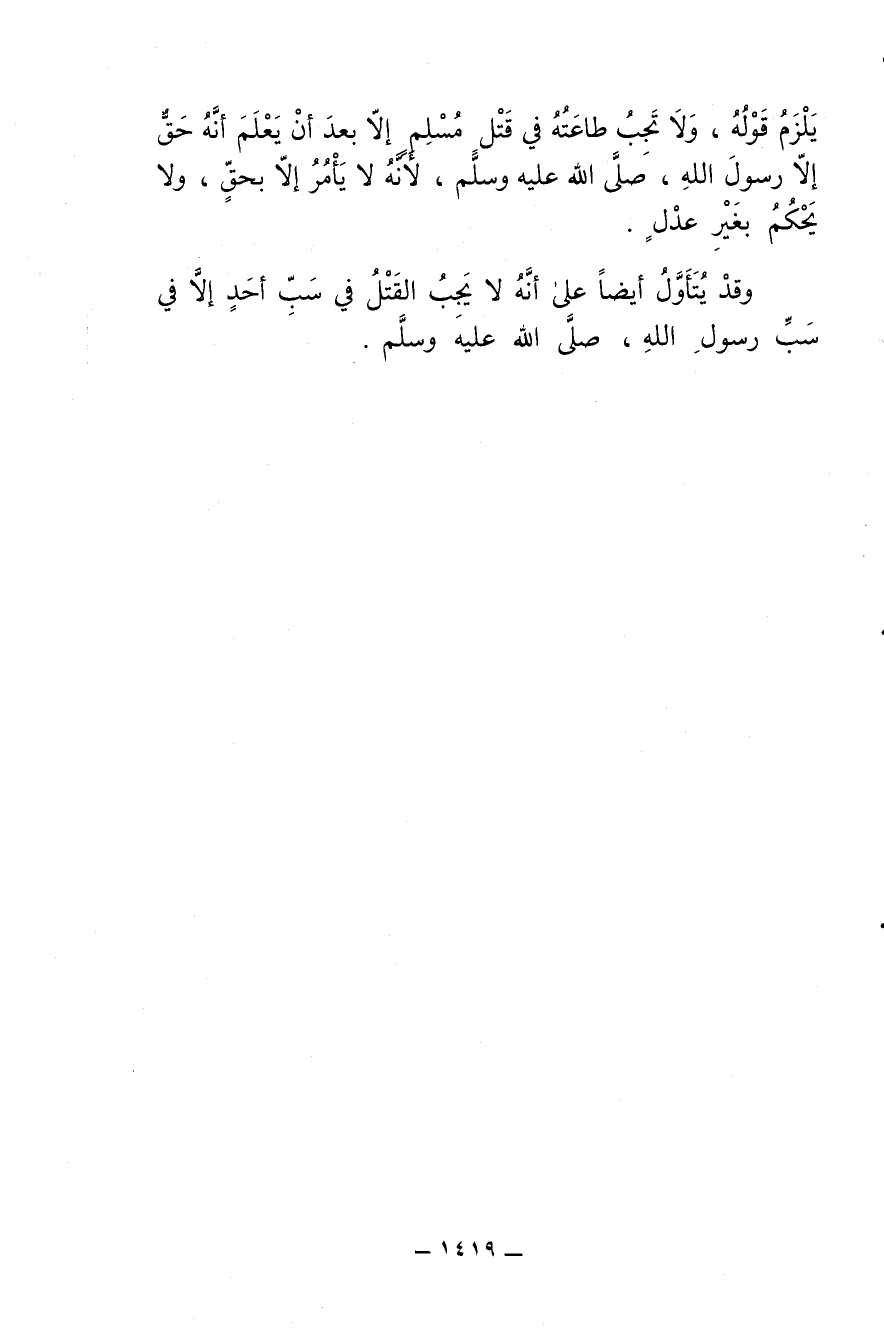 يَلْزَمُ قَوْلُهُ ، وَلَا تَجِبُ طاعَتُهُ في قَتْلِ مُسْلِمٍ إلاّ بعدَ أنْ يَعْلَمَ أنَّهُ حَقٌّ
إلاّ رسولَ اللهِ ، صلَّى الله عليه وسلَّم ، لأَنَّهُ لا يَأْمُرُ إلاّ بحقٍّ ، ولا
يَحْكُمُ بغَيْرِ عدْلٍ .
وقدْ يُتَأَوَّلُ أيضاً علىٰ أنَّهُ لا يَجِبُ القَتْلُ في سَبِّ أحَدٍ إلَّا في
سَبِّ رسولِ اللهِ ، صلَّى الله عليه وسلَّم .
ــ ١٤١٩ ــ